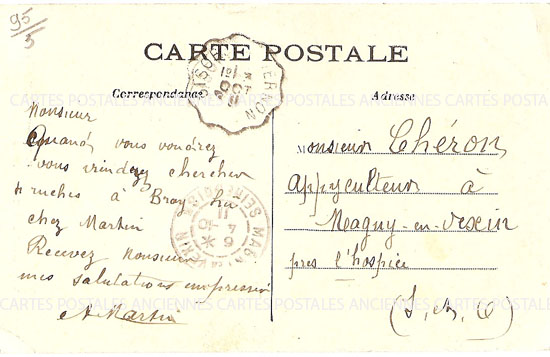 95/5
CARTE POSTALE
Correspondance
Adresse
Monsieur
Quand vous voudrez
vous viendrez chercher
4 ruches à Bray lu
chez Martin
Recevez Monsieur
mes salutations empressées
A Martin
Monsieur Chéron
Appyculteur à
Magny-en-Vexin
pres l'hospice
(S, &, O)
VERNON
SEINE
CARTES POSTALES ANCIENNES CARTES POSTALES ANCIENNES CARTES POSTALES
CARTES POSTALES ANCIENNES CARTES POSTALES ANCIENNES CARTES POSTALES